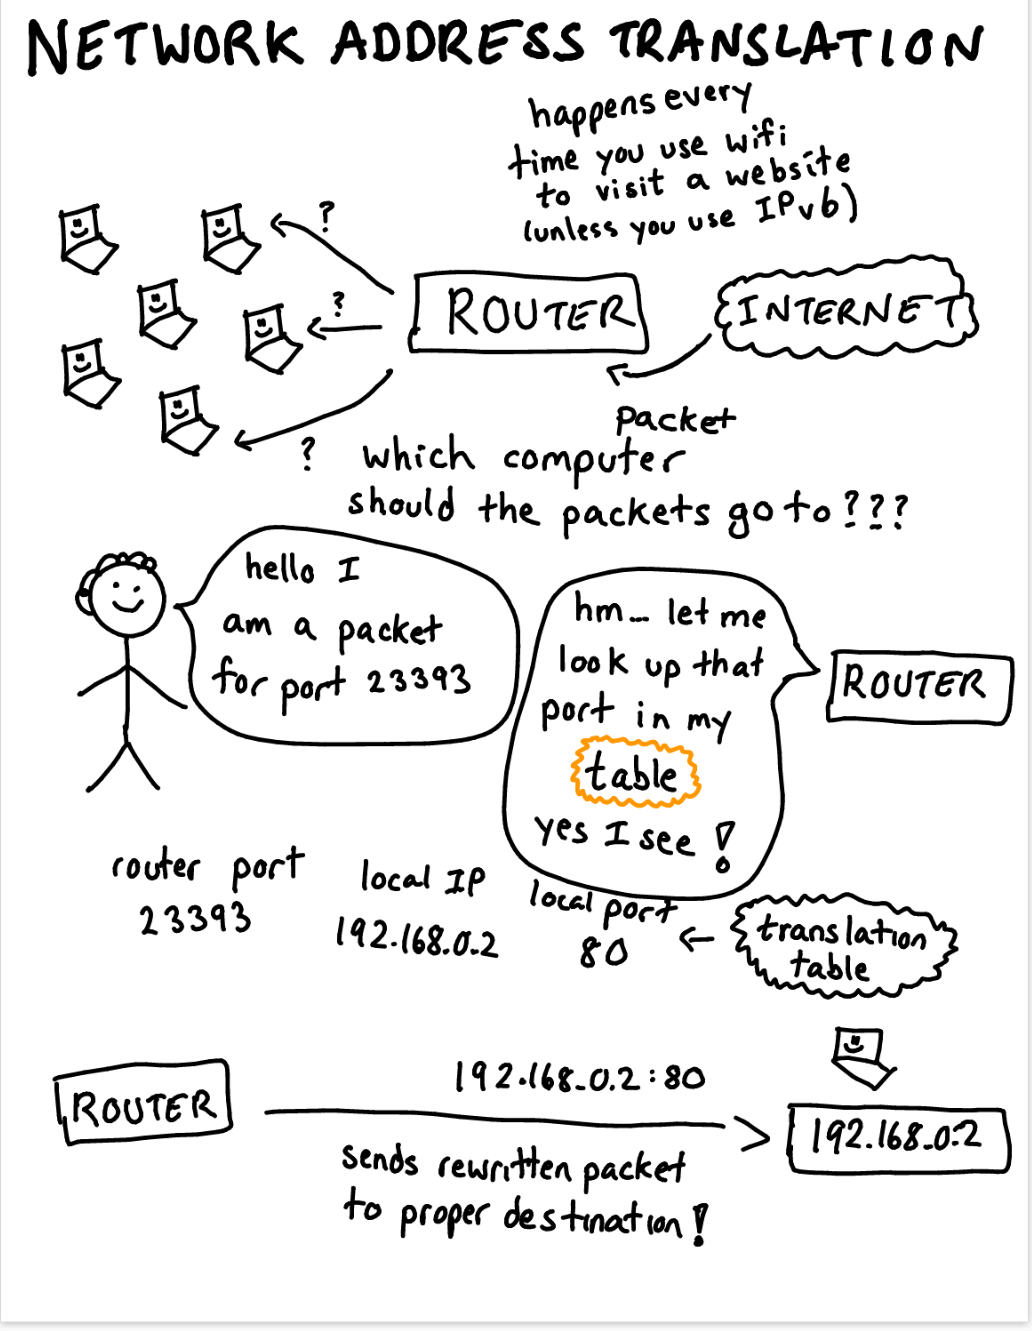 NETWORK ADDRESS TRANSLATION
happens every
time you use wifi
to visit a website
(unless you use IPv6)
?
?
ROUTER
INTERNET
packet
?
which computer
should the packets go to ???
hello I
am a packet
for port 23393
hm... let me
look up that
port in my
table
yes I see!
ROUTER
router port
23393
local IP
192.168.0.2
local port
80
translation
table
ROUTER
192.168.0.2:80
192.168.0.2
sends rewritten packet
to proper destination!